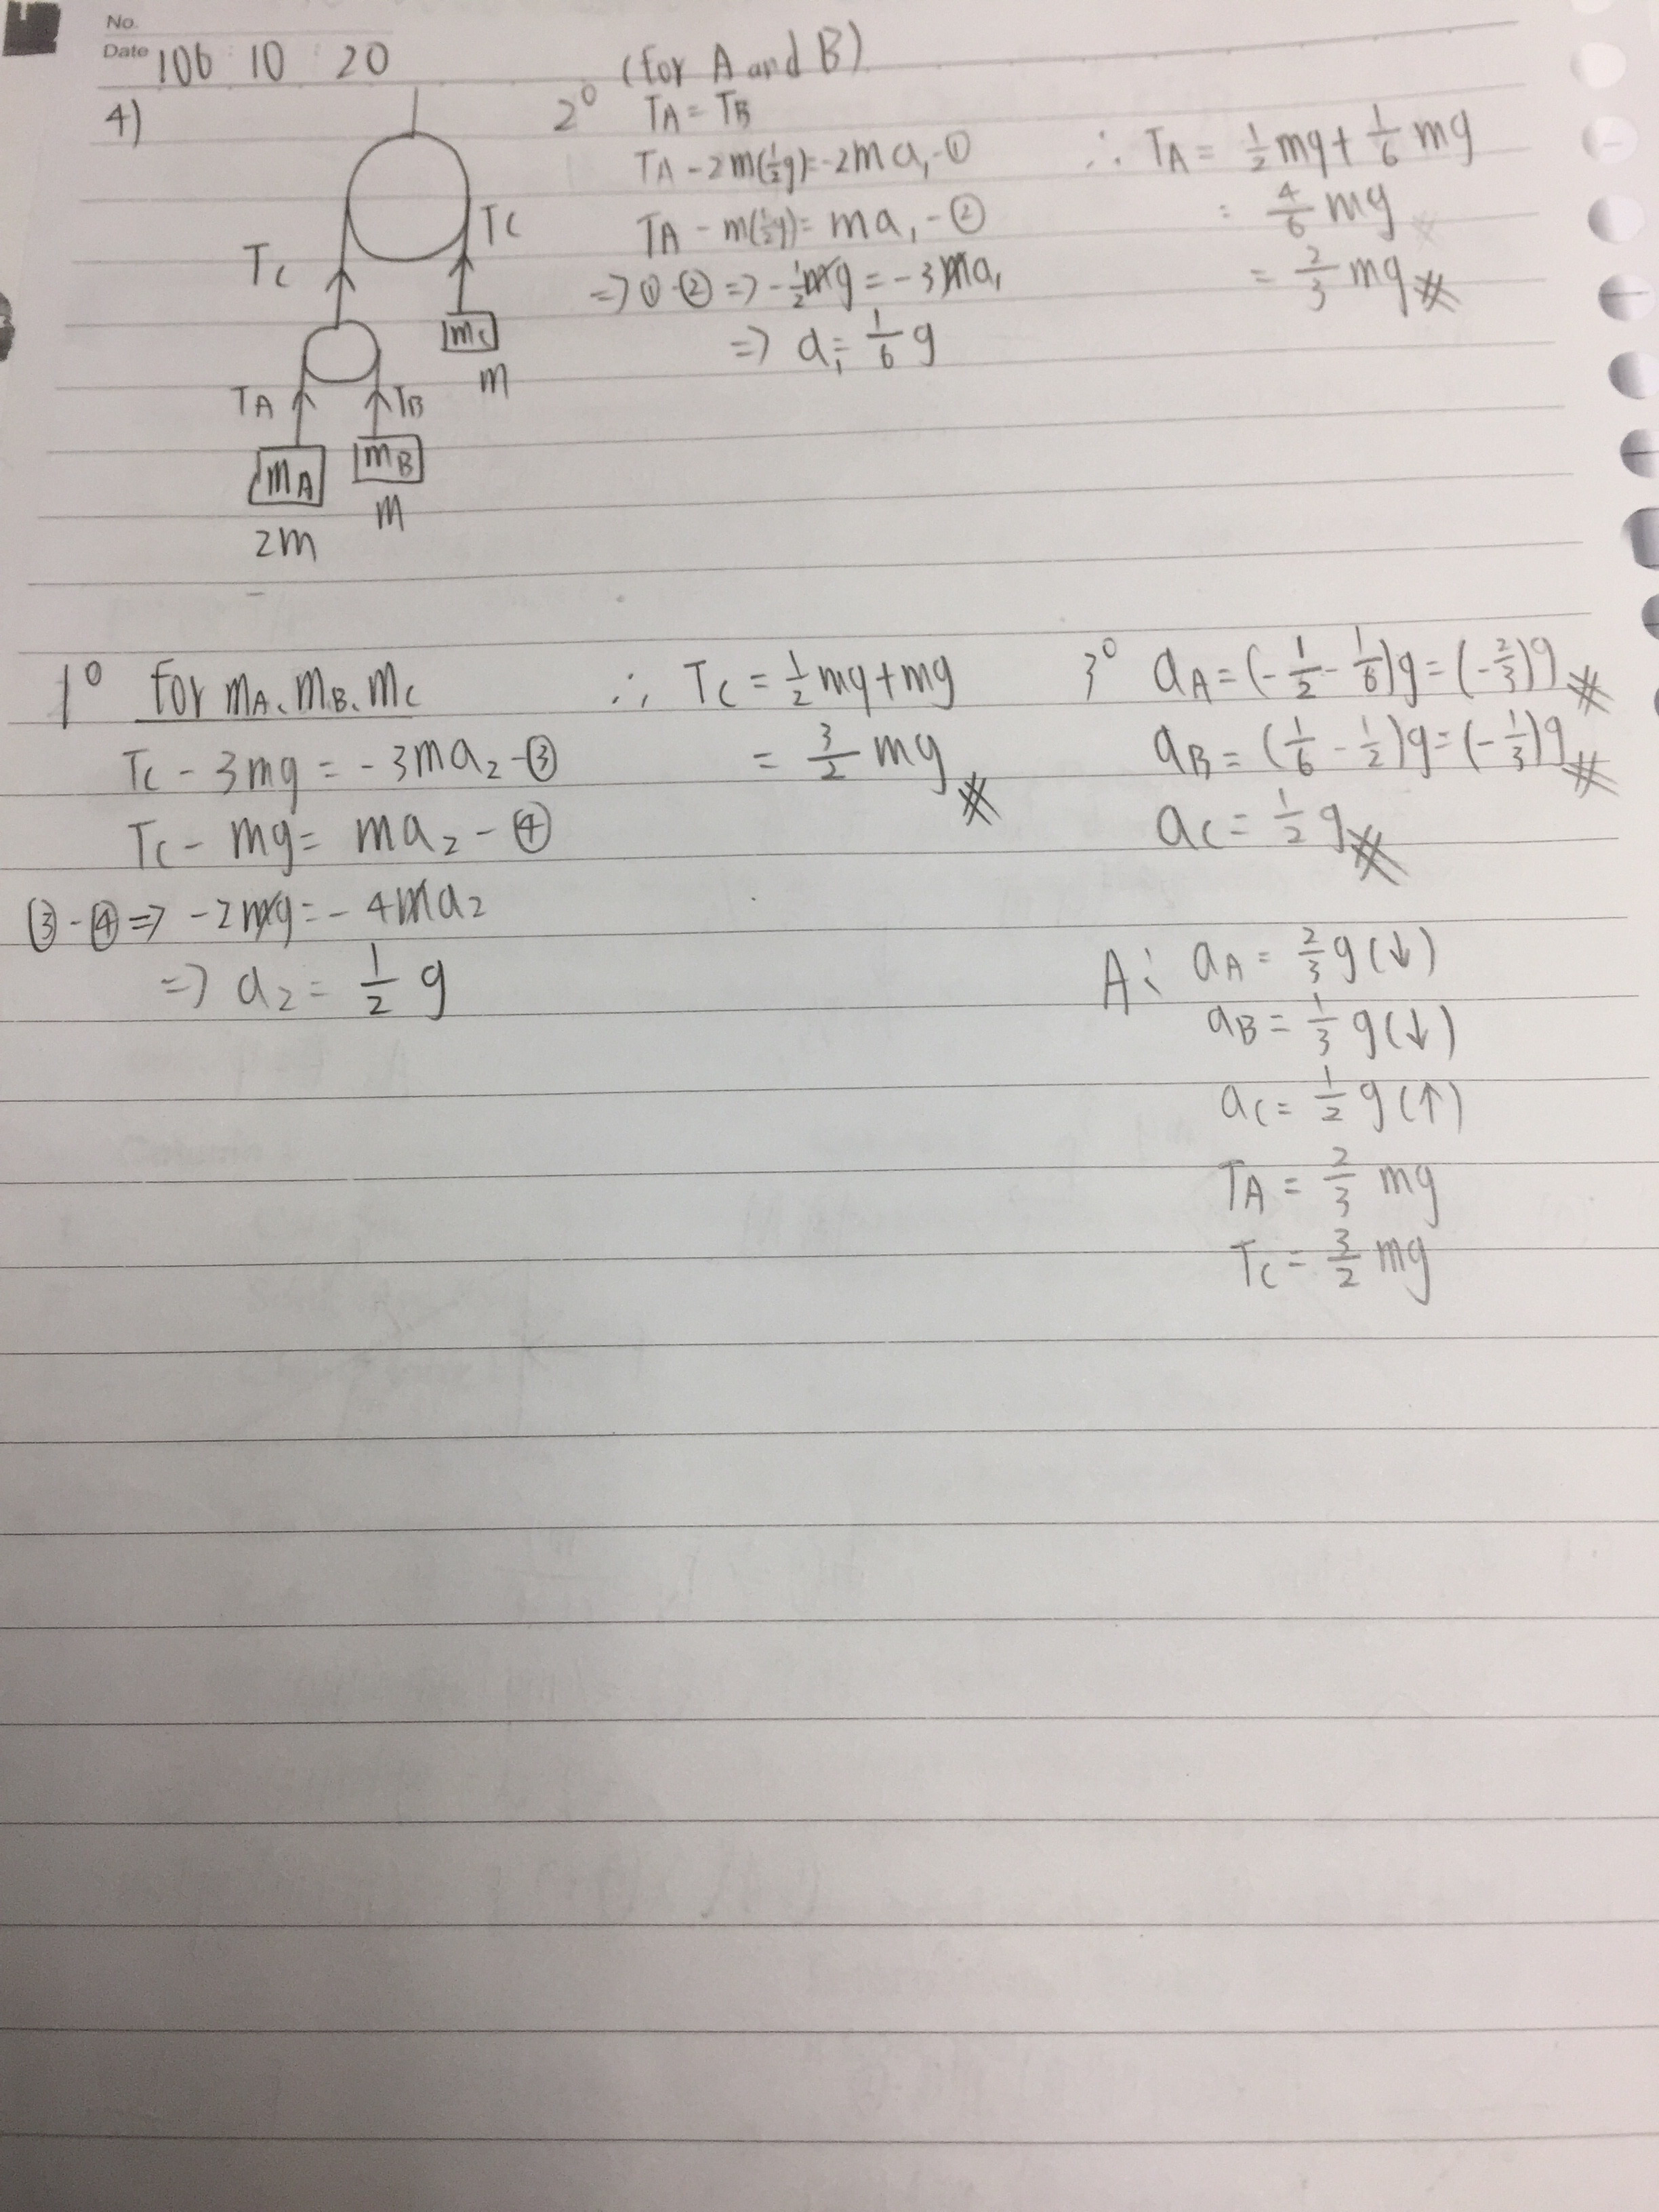 No.
Date 106 10 20
4)
Tc
Tc
mc
m
TA
TB
mA
mB
2m
m
2° (for A and B)
TA = TB
TA - 2m(½g) = -2ma₁ -①
TA - m(½g) = ma₁ -②
=> ①-② => -½mg = -3ma₁
=> a₁ = 1/6 g
∴ TA = ½mg + 1/6 mg
= 4/6 mg
= 2/3 mg #
1° for mA、mB、mc
Tc - 3mg = -3ma₂ -③
Tc - mg = ma₂ -④
③-④ => -2mg = -4ma₂
=> a₂ = 1/2 g
∴ Tc = ½mg + mg
= 3/2 mg #
3° aA = (-1/2 - 1/6)g = (-2/3)g #
aB = (1/6 - 1/2)g = (-1/3)g #
ac = 1/2 g #
A: aA = 2/3 g (↓)
aB = 1/3 g (↓)
ac = 1/2 g (↑)
TA = 2/3 mg
Tc = 3/2 mg